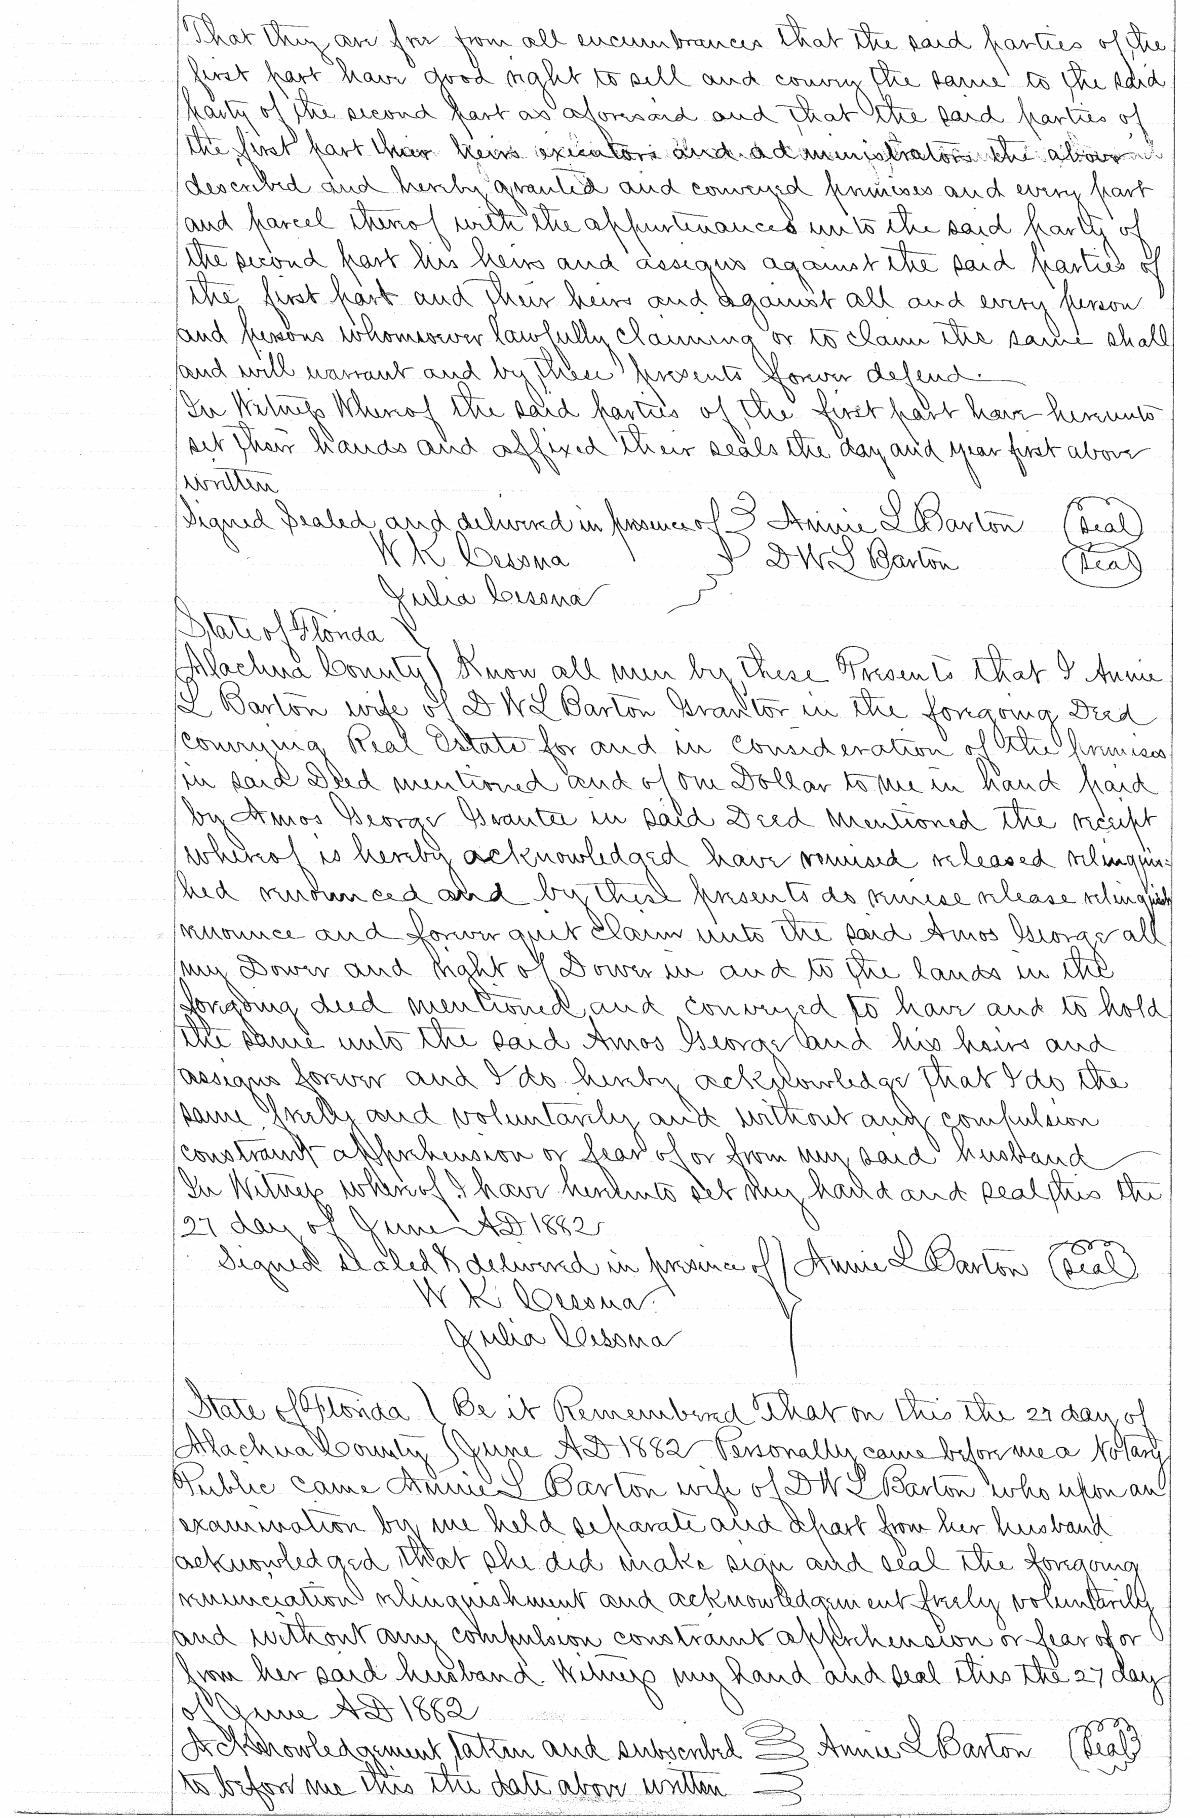 That they are free from all encumbrances that the said parties of the
first part have good right to sell and convey the same to the said
party of the second part as aforesaid and that the said parties of
the first part their heirs executors and administrators the above
described and hereby granted and conveyed premises and every part
and parcel thereof with the appurtenances unto the said party of
the second part his heirs and assigns against the said parties of
the first part and their heirs and against all and every person
and persons whomsoever lawfully claiming or to claim the same shall
and will warrant and by these presents forever defend.
In Witness Whereof the said parties of the first part have hereunto
set their hands and affixed their seals the day and year first above
written
Signed Sealed and delivered in presence of } Annie L Barton (Seal)
W K Cessna } D W L Barton (Seal)
Julia Cessna
State of Florida }
Alachua County } Know all men by these Presents that I Annie
L Barton wife of D W L Barton Grantor in the foregoing Deed
conveying Real Estate for and in consideration of the premises
in said Deed mentioned and of one Dollar to me in hand paid
by Amos George Grantee in said Deed mentioned the receipt
whereof is hereby acknowledged have remised released relinquis-
hed renounced and by these presents do remise release relinquish
renounce and forever quit claim unto the said Amos George all
my Dower and right of Dower in and to the lands in the
foregoing deed mentioned and conveyed to have and to hold
the same unto the said Amos George and his heirs and
assigns forever and I do hereby acknowledge that I do the
same freely and voluntarily and without any compulsion
constraint apprehension or fear of or from my said husband
In Witness whereof I have hereunto set my hand and seal this the
27 day of June AD 1882
Signed sealed & delivered in presence of } Annie L Barton (Seal)
W K Cessna
Julia Cessna
State of Florida } Be it Remembered That on this the 27 day of
Alachua County } June AD 1882 Personally came before me a Notary
Public came Annie L Barton wife of D W L Barton who upon an
examination by me held separate and apart from her husband
acknowledged that she did make sign and seal the foregoing
renunciation relinquishment and acknowledgement freely voluntarily
and without any compulsion constraint apprehension or fear of or
from her said husband. Witness my hand and seal this the 27 day
of June AD 1882
Acknowledgement taken and subscribed } Annie L Barton (Seal)
to before me this the date above written